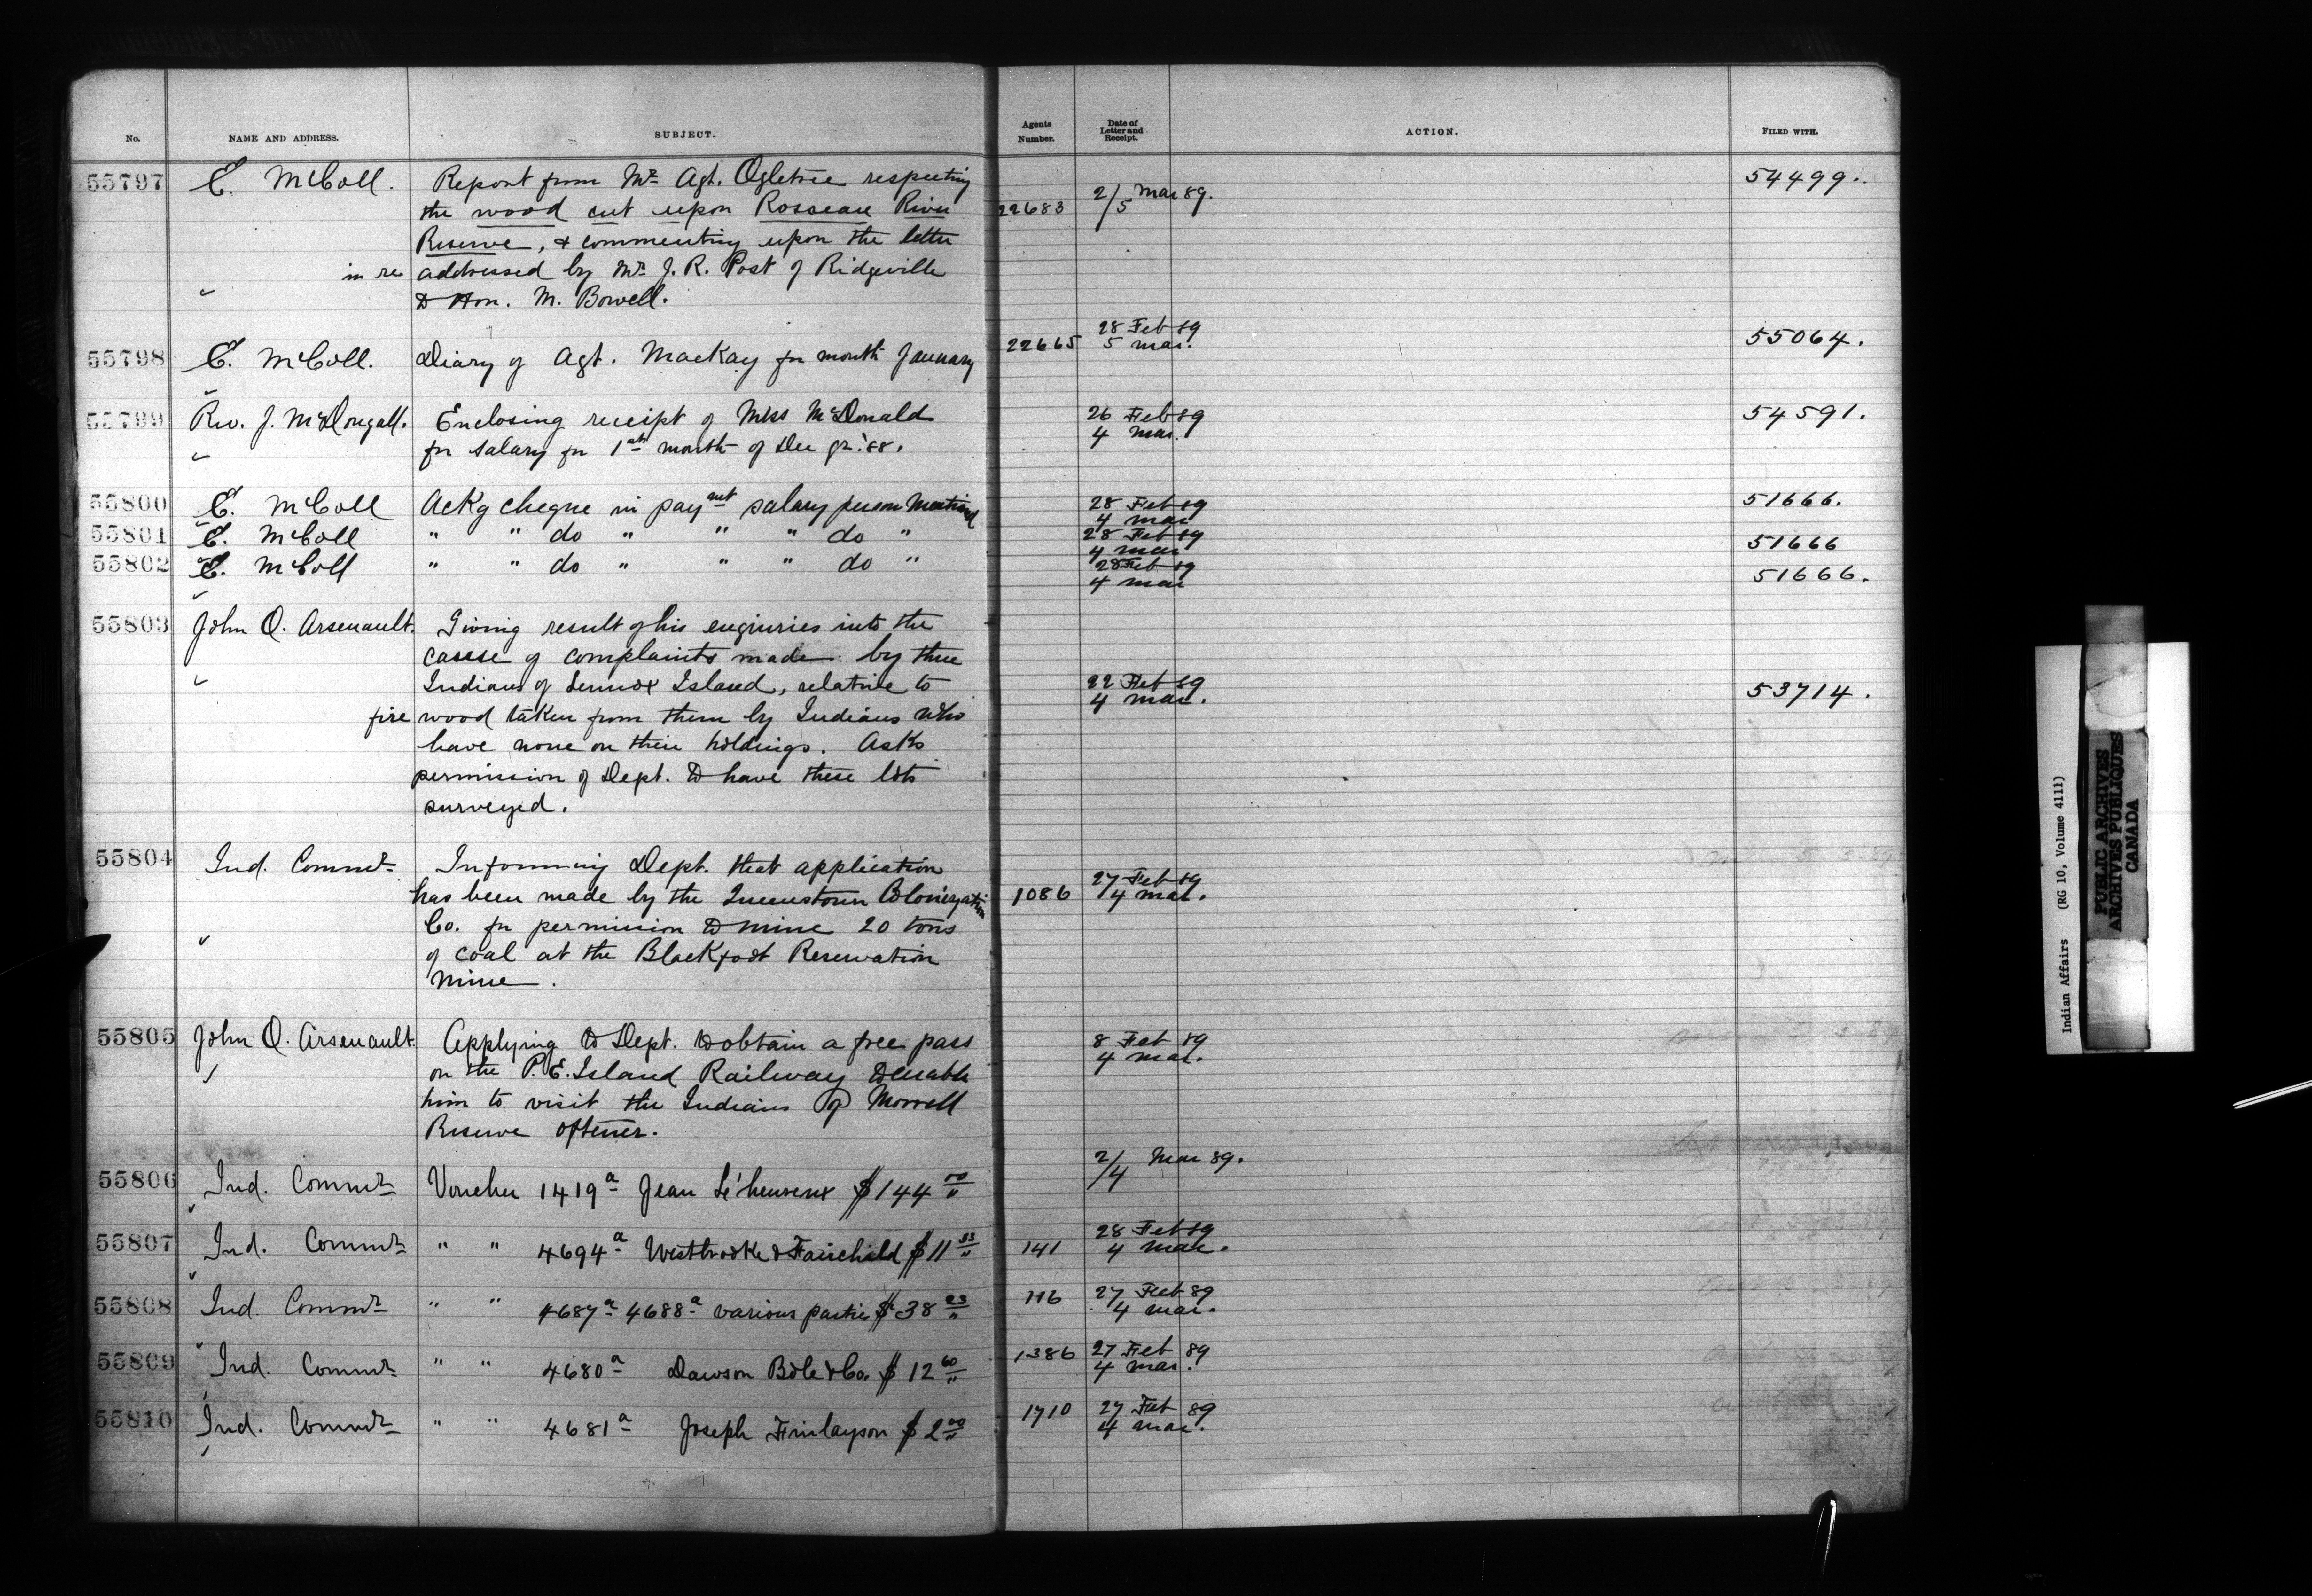 No. NAME AND ADDRESS. SUBJECT. Agents Number. Date of Letter and Receipt. ACTION. FILED WITH.
55797 E. McColl. Report from Mr. Agt. Ogletree respecting 54499.
the wood cut upon Roseau River 22683 2/5 Mar 89.
Reserve, & commenting upon the letter
in re addressed by Mr. J. R. Post of Ridgeville
to Hon. M. Bowell.
55798 E. McColl. Diary of Agt. Mackay for month January 22665 28 Feb 89 55064.
5 Mar.
55799 Rev. J. McDougall. Enclosing receipt of Miss McDonald 26 Feb 89 54591.
for salary for 1st month of Dec qr. '88. 4 Mar.
55800 E. McColl Ackg cheque in paymt salary person mentioned 28 Feb 89 51666.
4 Mar
55801 E. McColl " " do " " " do " 28 Feb 89 51666
4 Mar
55802 E. McColl " " do " " " do " 28 Feb 89 51666.
4 Mar
55803 John O. Arsenault. Giving result of his enquiries into the
case of complaints made by three
Indians of Lennox Island, relative to 22 Feb 89 53714.
4 Mar.
fire wood taken from them by Indians who
have none on their holdings. Asks
permission of Dept. to have these lots
surveyed.
55804 Ind. Commr Informing Dept. that application
has been made by the Queenstown Colonization 1086 27 Feb 89
4 Mar.
Co. for permission to mine 20 tons
of coal at the Blackfoot Reservation
mine.
55805 John O. Arsenault. Applying to Dept. to obtain a free pass 8 Feb 89
4 Mar.
on the P. E. Island Railway to enable
him to visit the Indians of Morrell
Reserve oftener.
55806 Ind. Commr Voucher 1419a Jean L'heureux $144 00 2/4 Mar 89.
55807 Ind. Commr " " 4694a Westbrooke & Fairchild $11 33 141 28 Feb 89
4 Mar.
55808 Ind. Commr " " 4687a 4688a various parties $38 23 116 27 Feb 89
4 Mar.
55809 Ind. Commr " " 4680a Dawson Bole & Co. $12 60 1386 27 Feb 89
4 Mar.
55810 Ind. Commr " " 4681a Joseph Finlayson $2 00 1710 27 Feb 89
4 Mar.
Indian Affairs (RG 10, Volume 4111)
PUBLIC ARCHIVES
ARCHIVES PUBLIQUES
CANADA